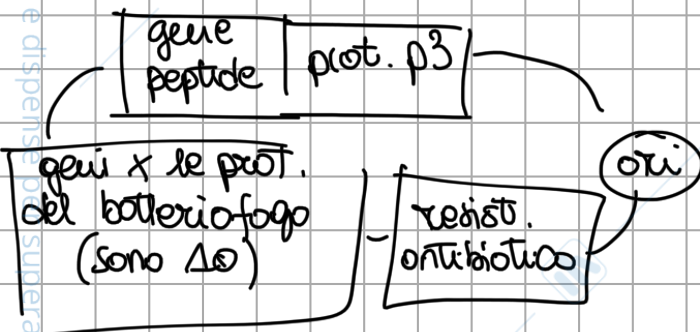 gene
peptide
prot. p3
geni x le prot.
del batteriofago
(sono 10)
resist.
antibiotico
ori
e dispense per supera